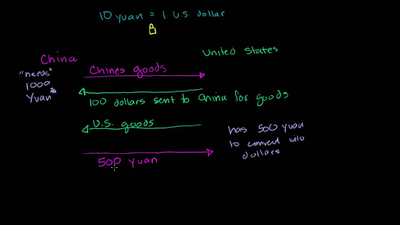 10 yuan = 1 U.S. dollar
United States
China
Chines goods
"needs"
1000
Yuan
100 dollars sent to China for goods
U.S. goods
has 500 yuan
to convert into
dollars
500 yuan